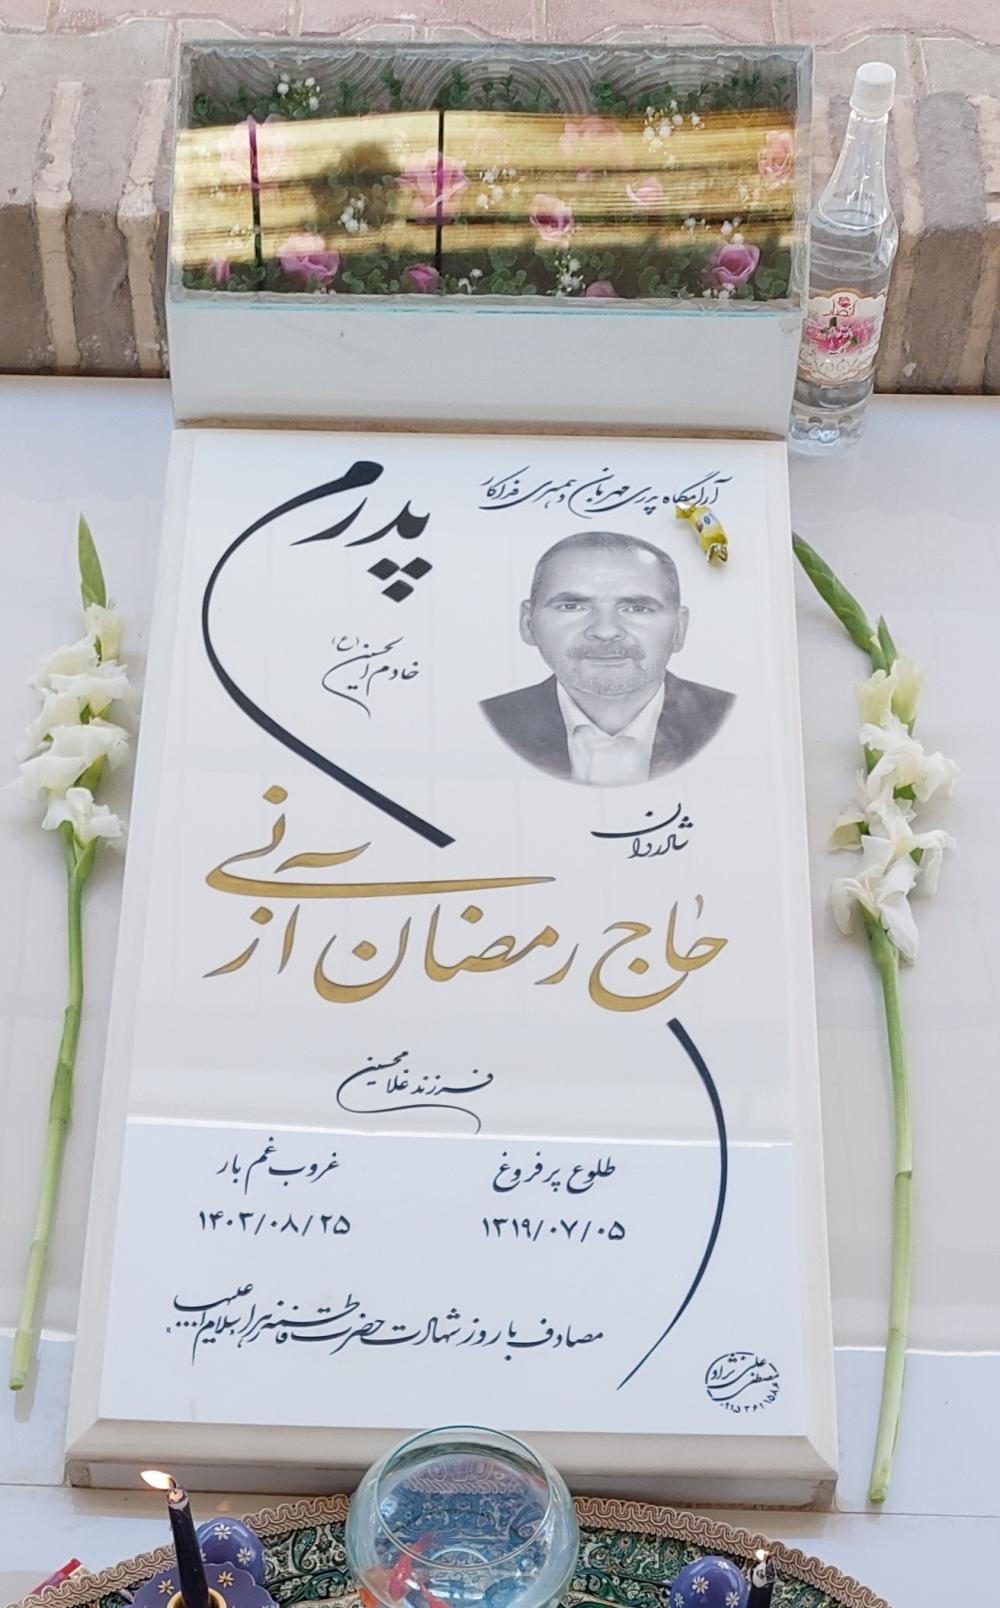 آرامگاه پدری مهربان و همسری فداکار
پدرم
خادم الحسین (ع)
شادروان
حاج رمضان آنی
فرزند غلامحسین
طلوع پر فروغ
۱۳۱۹/۰۷/۰۵
غروب غم بار
۱۴۰۳/۰۸/۲۵
مصادف با روز شهادت حضرت فاطمه زهرا سلام الله علیها
مصطفی علی نژاد